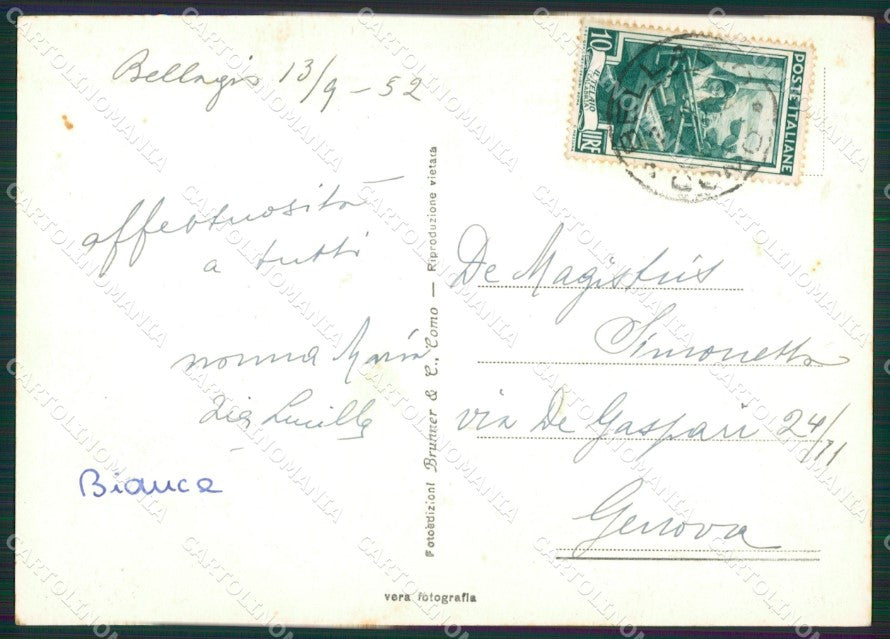 Bellagio 13/9 - 52
affettuosità
a tutti
nonna Maria
Zia Lucilla
Bianca
Fotoedizioni Brunner & C., Como — Riproduzione vietata
vera fotografia
10
LIRE
IL TELAIO
POSTE ITALIANE
BELLA
COMO
De Magistris
Simonetta
via De Gaspari 24/11
Genova
CARTOLINOMANIA